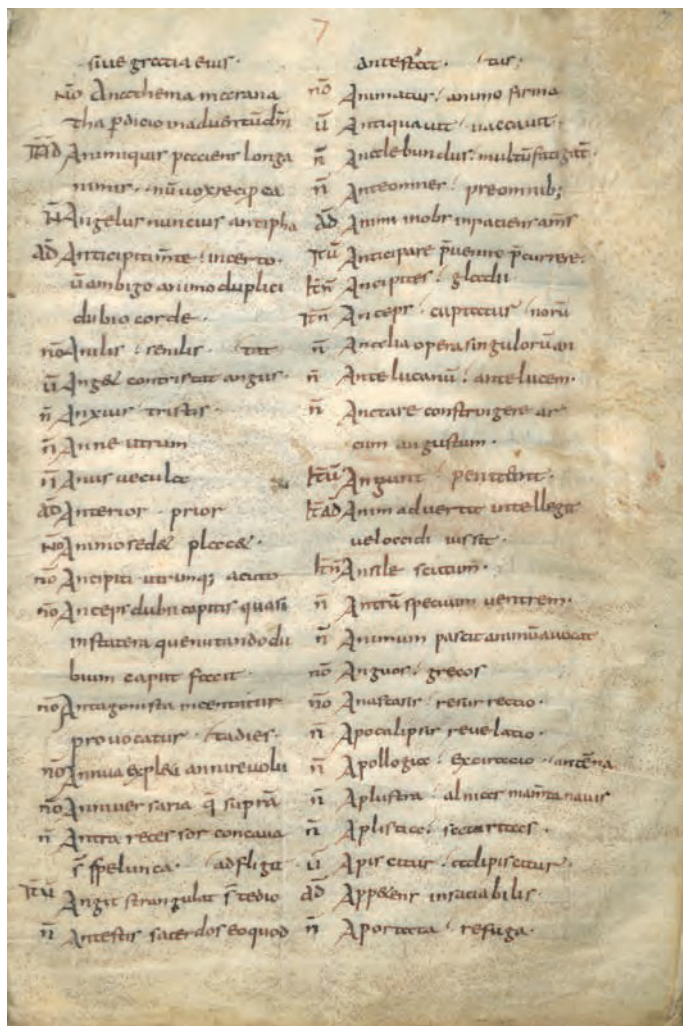 7
siue gratia eius ·
nō Anathema macrana
tha ꝑdicio in aduentū dn̄i
Animequis paciens longa
nimis ·
n̄ Angelus nuncius antipha
ad̄ Ancipiti m̄te · incerto ·
ū ambigo animo duplici
dubio corde ·
nō Anilis · senilis · tat
ū Anget contristat angus ·
n̄ Anxius tristis ·
n̄ Anne utrum
n̄ Anus uecula
ad̄ Anterior · prior
nō Animo sedet placet ·
nō Ancipiti utrumq; acuto
nō Anceps dubii capitis quasi
in statera que nutando du
bium caput facit ·
nō Antagonista incentitur
prouocatur · tadies ·
nō Annua explexi anni reuolu
nō Anniuersaria q̄ supra
n̄ Antra recessos concaua
s̄ spelunca · adfligit
Angit strangulat s̄ tedio
n̄ Antestis sacerdos eo quod
antestat · tur;
nō Animatur · animo firma
ū Antiquauit uacauit ·
n̄ Anclebundus · multū fatigat̄ ·
n̄ Ante omnes · pre omnib;
ad̄ Animi inops inpaciens
Anticipare p̄uenire p̄currere ·
Ancipites · gladii ·
Anceps · capitatur · norū
n̄ Ancilia opera singulorū an
n̄ Ante lucanū · ante lucem ·
n̄ Anctare constringere ar
cum angustum ·
Angunt · peniteant ·
Animaduertit intellegit
uel occidi iussit ·
Ansile scutum ·
n̄ Antrū specuum uentrem ·
n̄ Animum pascit animū auocat
nō Anguos · grecos
nō Anastasis · resurrectio ·
n̄ Apocalipsis reuelatio ·
n̄ Apollogia · excusacio · antēna
n̄ Aplustra · alnices mam̄ta nauis
n̄ Aplistia · saturitas ·
ū Apiscitur · adipiscitur ·
ad̄ Appetens insaciabilis ·
n̄ Aportata · refuga ·